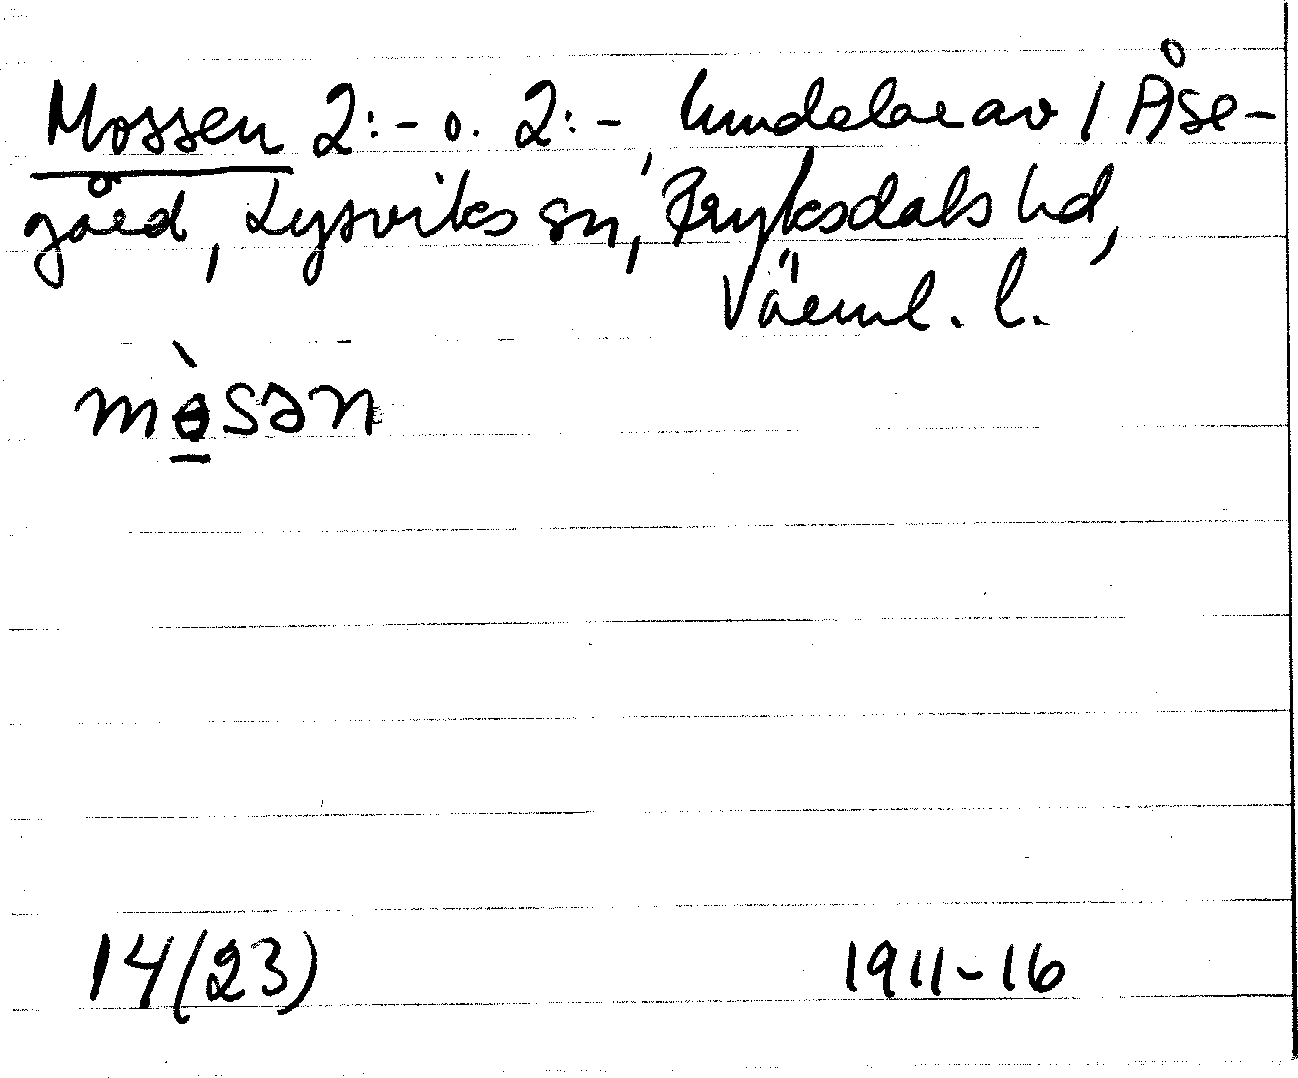 Mossen 2:- o. 2:-, hmdelar av 1 Åse-
gård, Lysviks sn, Fryksdals hd,
Värml. l.
mɵ̀sən
14(23) 1911-16